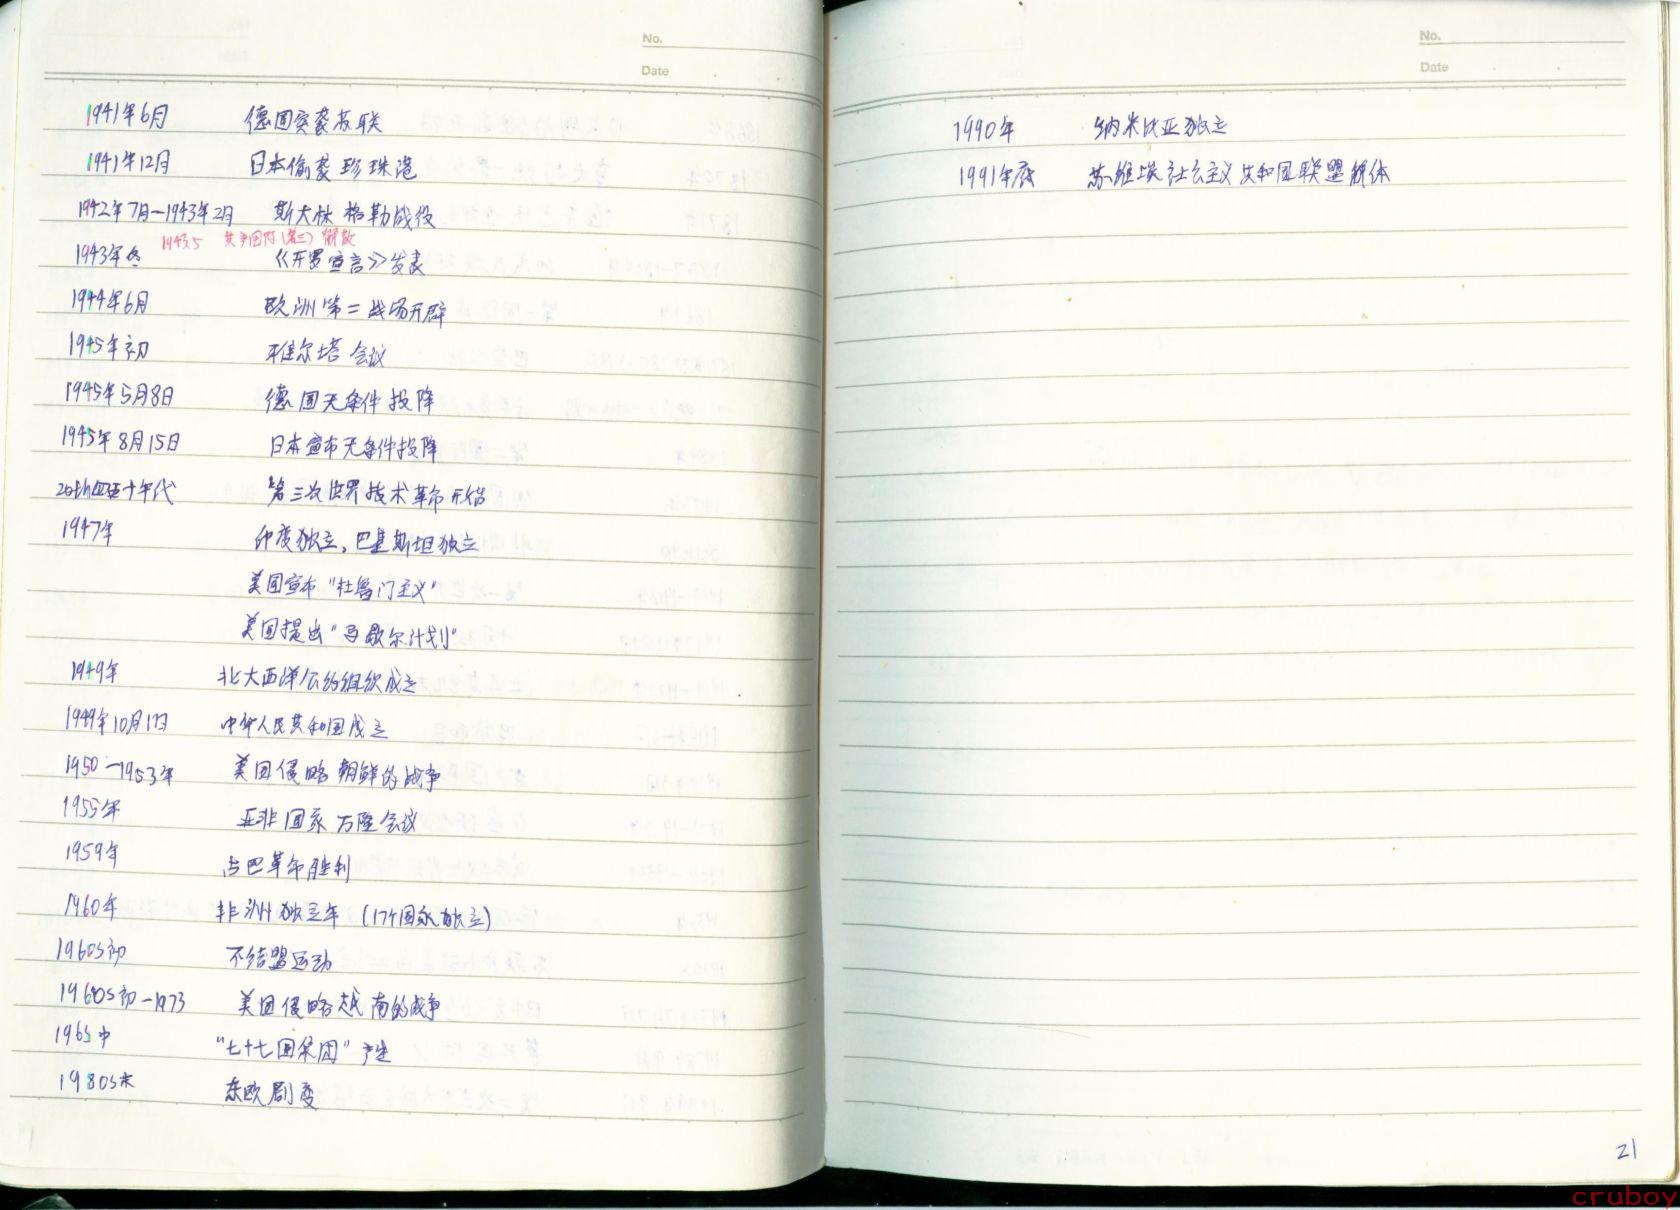 No.
Date
1941年6月 德国突袭苏联
1941年12月 日本偷袭珍珠港
1942年7月—1943年2月 斯大林格勒战役
1943.5 共产国际(第三)解散
1943年冬 《开罗宣言》发表
1944年6月 欧洲第二战场开辟
1945年初 雅尔塔会议
1945年5月8日 德国无条件投降
1945年8月15日 日本宣布无条件投降
20th四五十年代 第三次世界技术革命开始
1947年 印度独立,巴基斯坦独立
美国宣布"杜鲁门主义"
美国提出"马歇尔计划"
1949年 北大西洋公约组织成立
1949年10月1日 中华人民共和国成立
1950—1953年 美国侵略朝鲜的战争
1955年 亚非国家万隆会议
1959年 古巴革命胜利
1960年 非洲独立年(17个国家独立)
1960s初 不结盟运动
1960s初—1973 美国侵略越南的战争
196s中 "七十七国集团"产生
1980s末 东欧剧变
No.
Date
1990年 纳米比亚独立
1991年底 苏维埃社会主义共和国联盟解体
21
cruboy